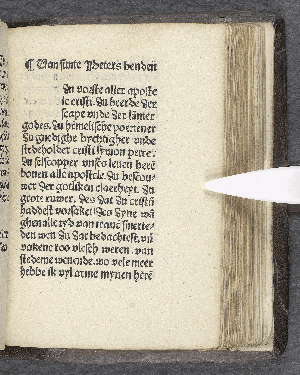 ¶ Van sunte Peters benden
du vorste aller apostele
ic cristi. du herde der
scapt vnde der lämer
godes. du hemelische portener
du gnedighe bychtigher vnde
stedeholder cristi symon petre.
du selscopper vnses leuen herē
bouen alle apostole. du beschou-
wer der gotliken claerheyt. du
grote ruwer. des dat du cristū
haddest vorsaket des dyne wā
ghen alle tyd van tranē smerte-
den wen du dar bedachtest. vñ
vakene too vlesch weren. van
stedeme wenende. wo vele meer
hebbe ik vyl arme mynen herē